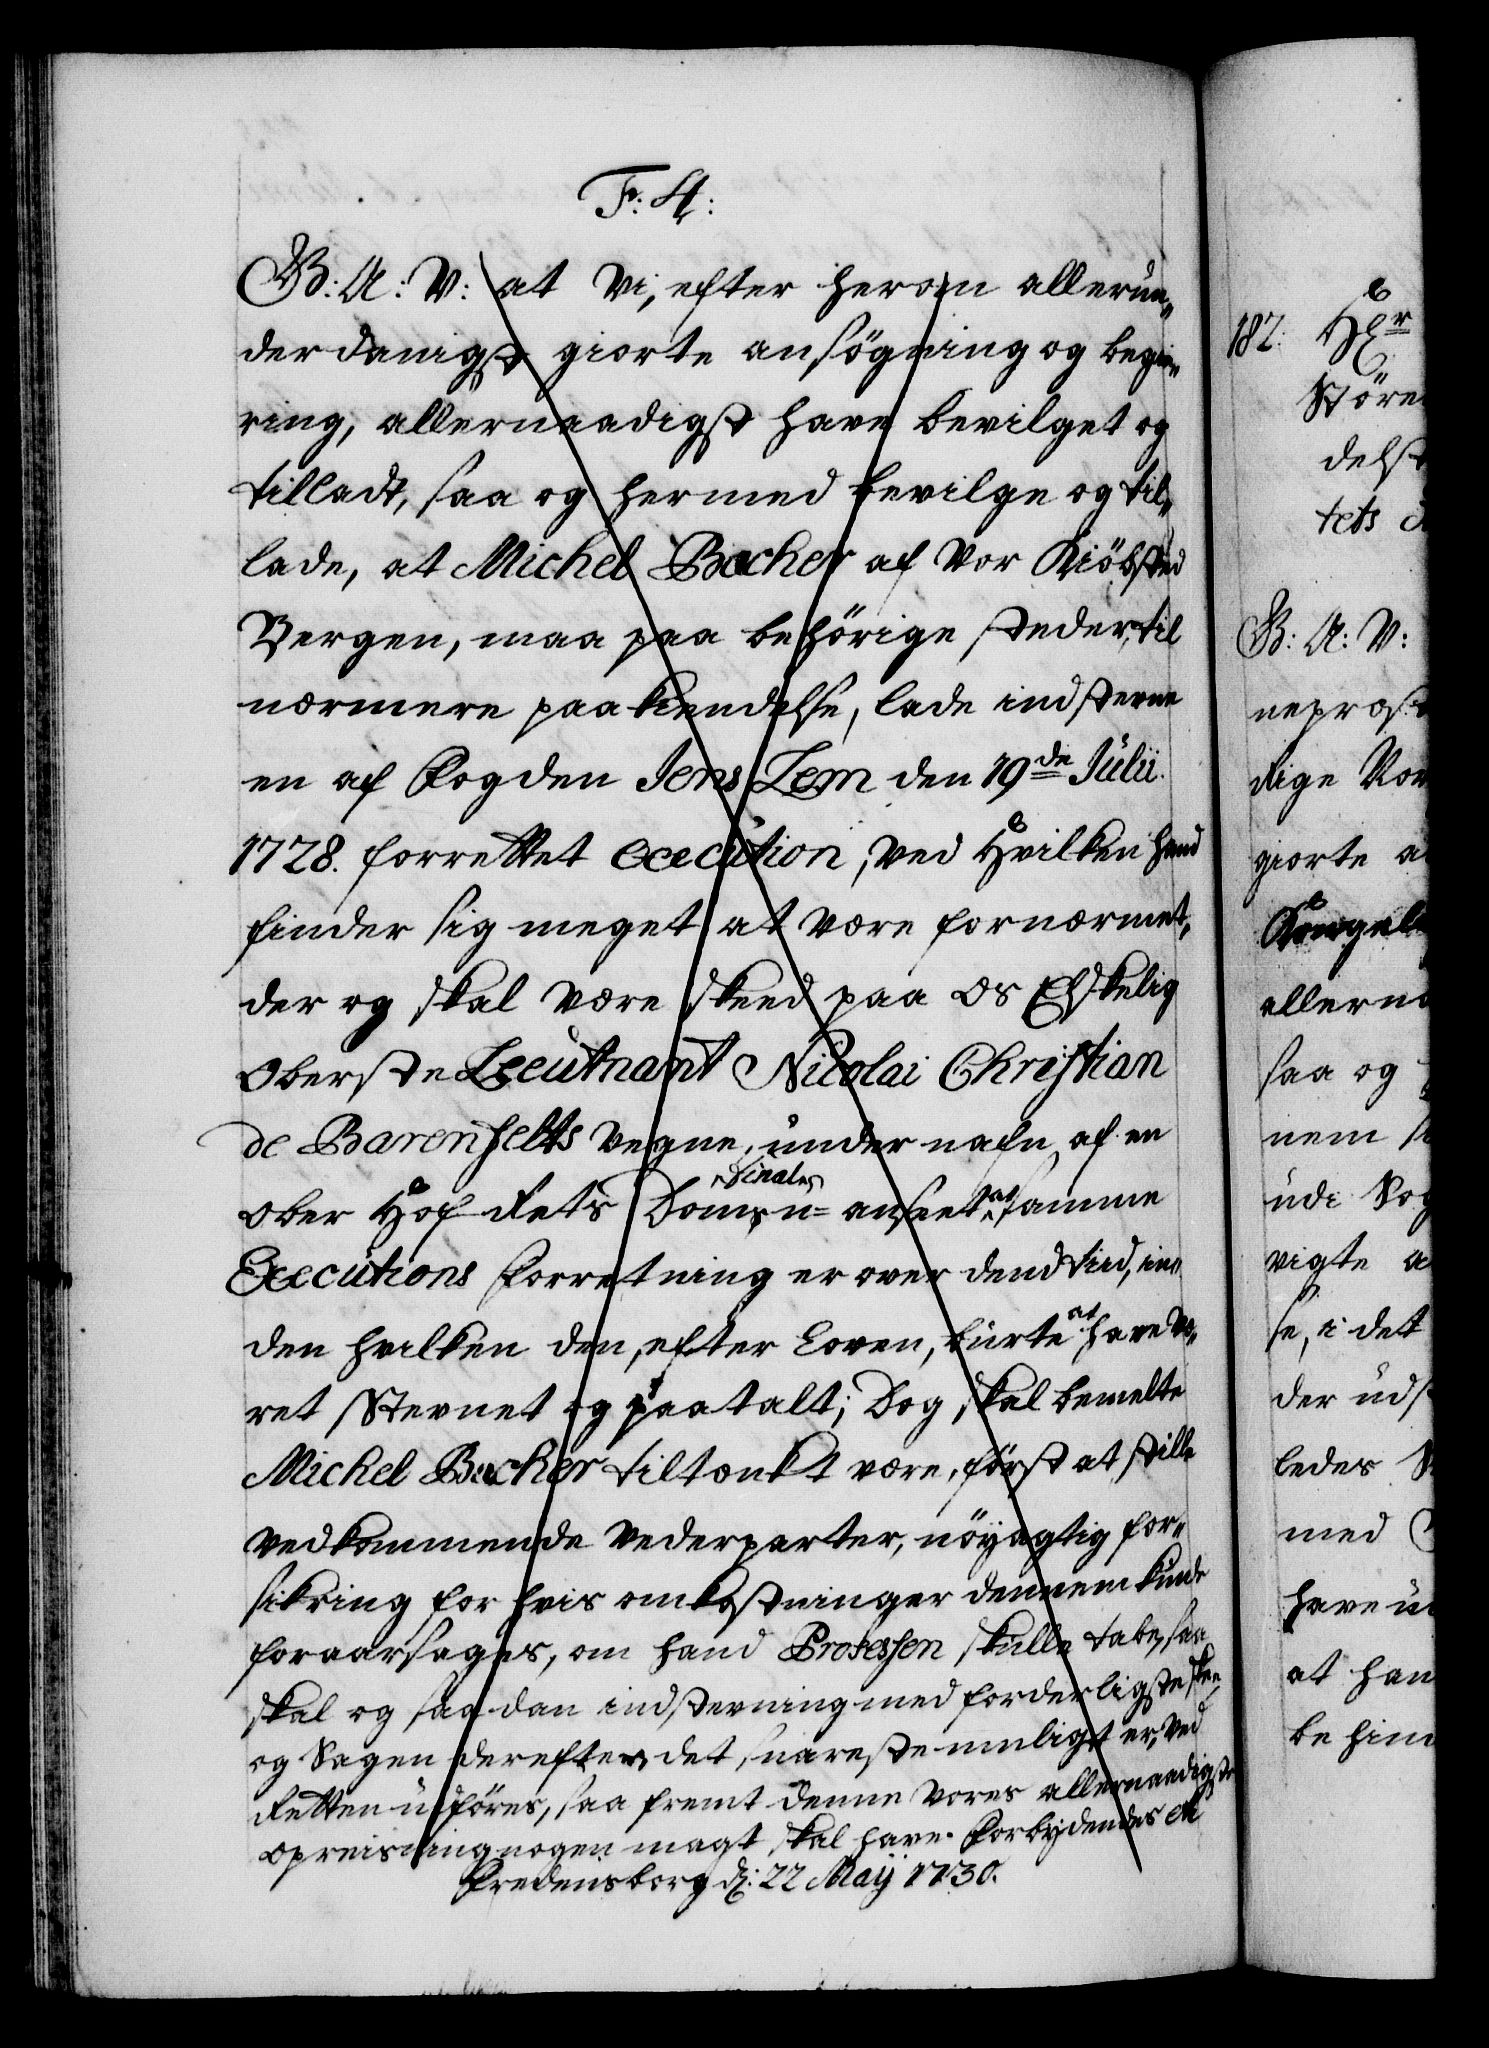 F: 4:
G: A: V: at Vi, efter herom allerun-
derdanigst giorte ansögning og begie-
ring, allernaadigst have bevilget og
tilladt, saa og hermed bevilge og til-
lade, at Michel Bøcher af Vor Kiöbsted
Bergen, maa paa behörige steder, til
nærmere paakiendelse, lade indstevne
en af Fogden Jens Lem den 19de Julii
1728. forrettet execution, ved Hvilken hand
finder sig meget at være fornærmet,
der og skal være skeed paa Os Elskelig
Oberste Leeutnant Nicolai Christian
de Barenfelts vegne, under nafn af en
final
Ober Hof Rets Dom, u-anseet at samme
Executions Forretning er over dend tiid, in-
den hvilken den, efter Loven, burte at have væ-
ret Stevnet og paatalt; Dog skal bemelte
Michel Bøcher tiltænkt være, först at stille
vedkommende Vederparter, nöyagtig for-
sikring for hvis omkostninger dennem kunde
foraarsages, om hand Processen skulle tabe, saa
skal og saadan indstevning med forderligste skee
og Sagen derefter det snareste mueligt er, ved
Retten udföres, saa fremt denne Vores allernaadigste
opreisning nogen magt skal have. Forbydendes etc
Fredensborg d: 22 Maij 1730.
182. HEr
Störe
delst
tets
G: A: V:
neprost
dige
giorte a
allerna
saa og
nem
udi Sog
vigte a
se, i det
der uds
ledes
med
have u
at han
be hin